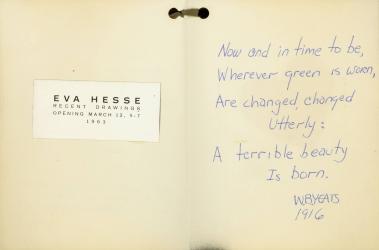 EVA HESSE
RECENT DRAWINGS
OPENING MARCH 12, 5-7
1963
Now and in time to be,
Wherever green is worn,
Are changed, changed
Utterly:
A terrible beauty
Is born.
W.B.YEATS
1916